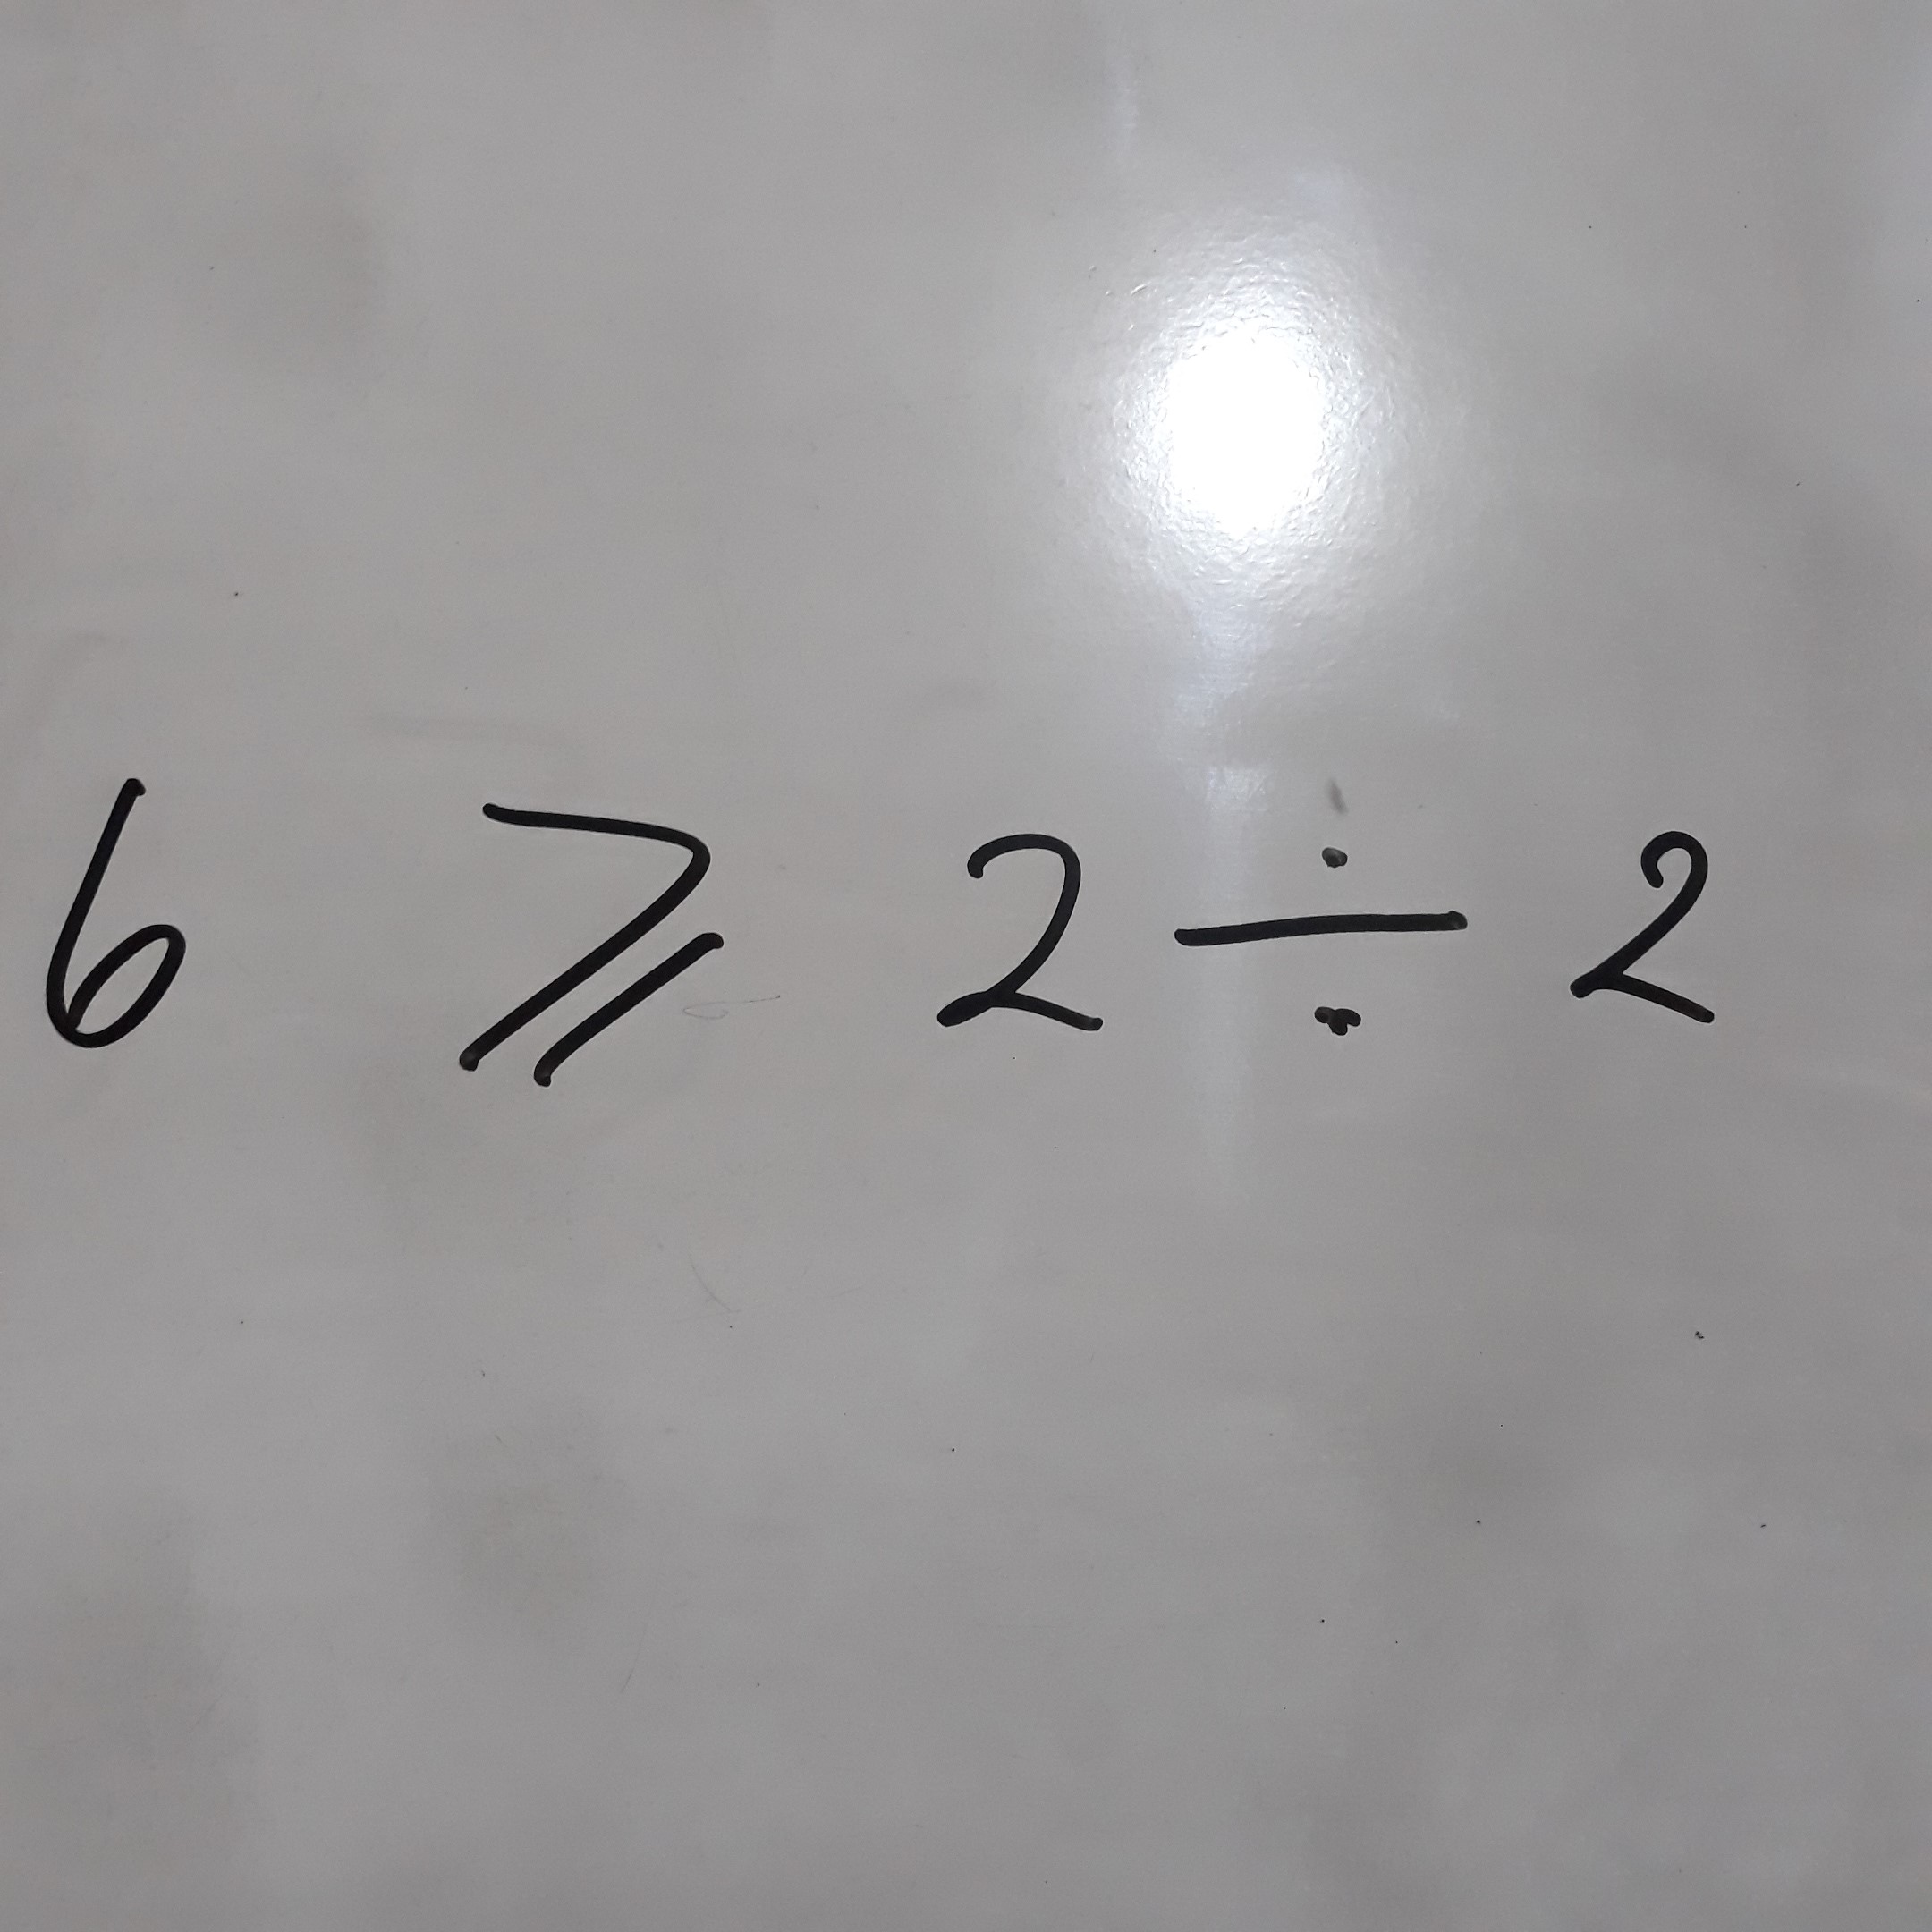 6 ⩾ 2 ÷ 2